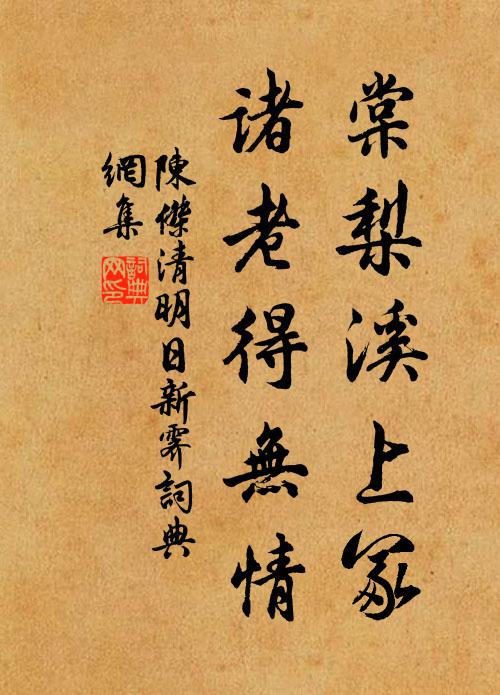 棠梨溪上冢
諸老得無情
陳傑清明日新霽詞典
網集
詞典
网印